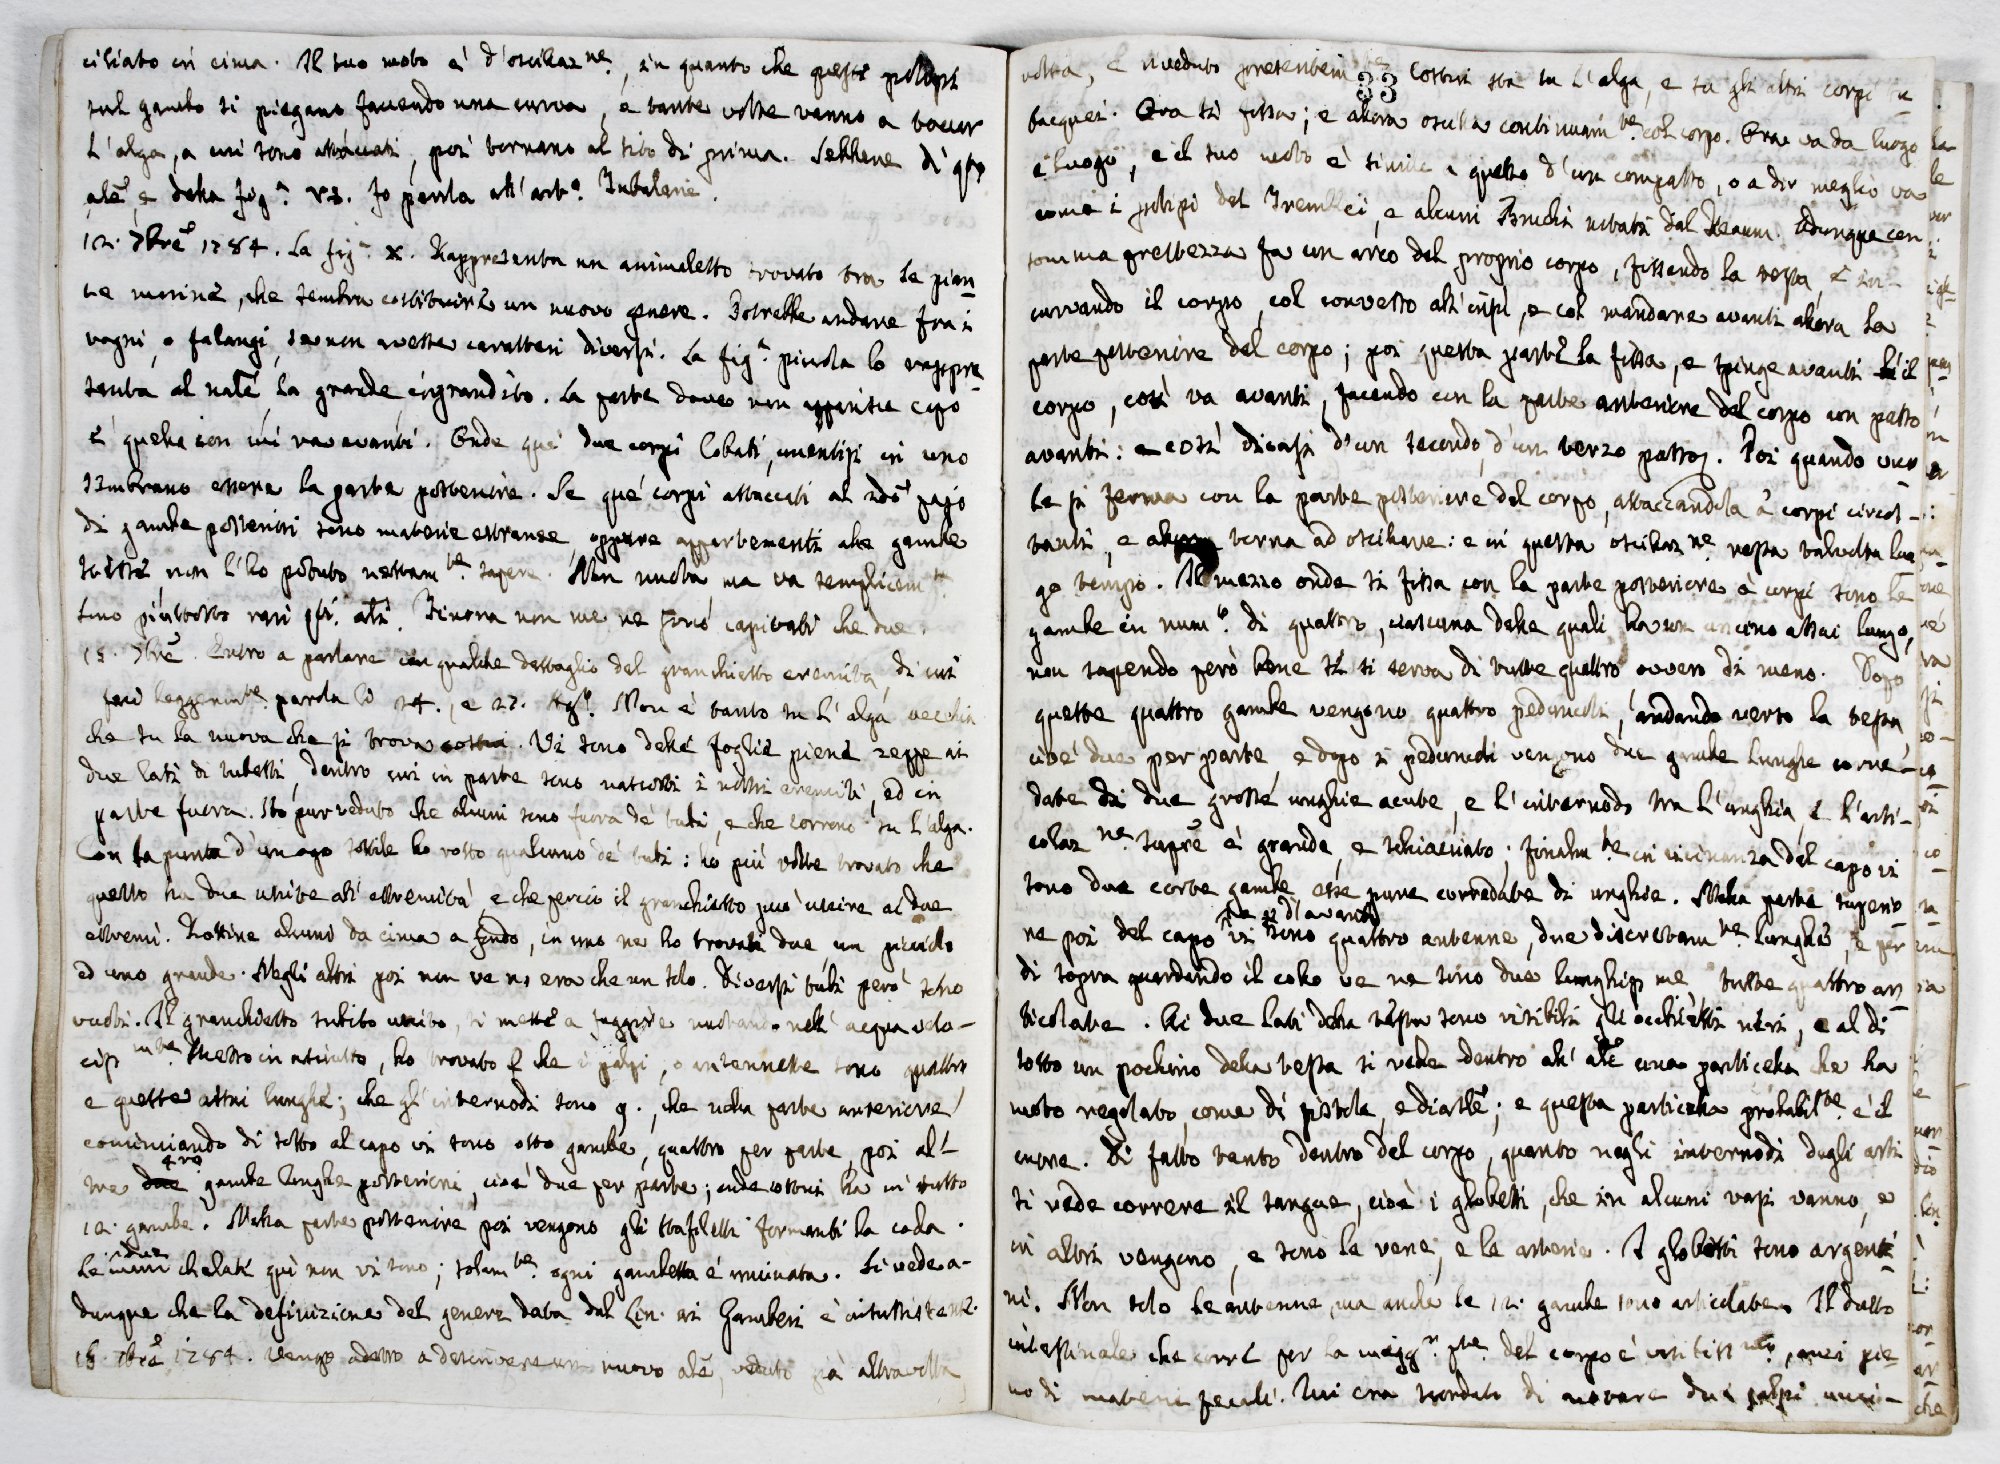 ciliato in cima. Il suo moto è d'oscillaz.ne, in quanto che questi polipi
sul gambo si piegano facendo una curva, e tante volte vanno a toccar
l'alga, a cui sono attaccati, poi tornano al sito di prima. Sebbene di qto
ale, e della fig.a V2. Io parla all'art.o Tubularie.
12. 7bre 1784. La fig.a X. Rappresenta un animaletto trovato tra le pian-
te marine, che sembra costituire un nuovo genere. Potrebbe andare fra i
ragni, o falangi, se non avesse caratteri diversi. La fig.a piccola lo rappre-
senta al nale, la grande ingrandito. La parte dove non apparisce capo
è quella con cui va avanti. Onde que' due corpi lobati, uncutisi in uno
sembrano essere la parte posteriore. Se que' corpi attaccati al 2do pajo
di gambe posteriori sono materie estranee, oppure appartenenti alle gambe
stesse non l'ho potuto nettam.te sapere. Non nuota, ma va semplicem.te
Sono piuttosto rari qti ali. Finora non me ne sono capitati che due.
15. 7bre. Entro a parlare con qualche dettaglio del granchietto eremita, di cui
feci leggerm.te parola li 24., e 27. Ag.to. Non è tanto su l'alga vecchia
che su la nuova che si trova costui. Vi sono delle foglie piene zeppe ai
due lati di tubetti, dentro cui in parte sono nascosti i nostri eremiti, ed in
parte fuora. Ho pur veduto che alcuni sono fuora de' tubi, e che corrono su l'alga.
Con la punta d'un ago sottile ho rotto qualcuno de' tubi: ho più volte trovato che
questo ha due uscite all'estremità, e che perciò il granchietto può uscire ai due
estremi. Rottine alcuni da cima a fondo, in uno ne ho trovati due, un piccolo
ed uno grande. Negli altri poi non ve n'era che un solo. Diversi tubi però sono
vuoti. Il granchietto subito uscito, si mette a fuggire nuotando nell'acqua velo-
cissim.te. Messo in asciutto, ho trovato che i palpi, o antennette sono quattro
e queste assai lunghe; che gl'internodi sono 9., che nella parte anteriore
cominciando di sotto al capo vi sono otto gambe, quattro per parte, poi al-
tre 4ro gambe lunghe posteriori, cioè due per parte; onde costui ha in tutto
12. gambe. Nella parte posteriore poi vengono gli stafiletti formanti la coda.
Le due chelate quì non vi sono; solam.te ogni gambetta è uncinata. Si vede a-
dunque che la definizione del genere data dal Lin. ai Gamberi è insussistente.
18. 7bre 1784. Vengo adesso a descrivere un nuovo ale, veduto già altra volta
33
volta, e riveduto presentem.te. Costui sta su l'alga, e su gli altri corpi su-
bacquei. Ora si fissa; e allora oscilla continuam.te col corpo. Ora va da luogo
a luogo, e il suo moto è simile a quello d'un compasso, o a dir meglio va
come i polipi del Tremblei, e alcuni Bruchi notati dal Reaum. Adunque con
somma prestezza fa un arco del proprio corpo, fissando la testa, e in-
curvando il corpo, col convesso all'insù, e col mandare avanti allora la
parte posteriore del corpo; poi questa parte la fissa, e spinge avanti il
corpo, così va avanti, facendo con la parte anteriore del corpo un passo
avanti: e così dicasi d'un secondo, d'un terzo passo. Poi quando vuo-
le si ferma con la parte posteriore del corpo, attaccandola a' corpi circos-
tanti, e allora torna ad oscillare: e in questa oscillaz.ne resta talvolta lun-
go tempo. Il mezzo onde si fissa con la parte posteriore a' corpi sono le
gambe in num.o di quattro, ciascuna delle quali ha un uncino assai lungo,
non sapendo però bene se si serva di tutte quattro ovvero di meno. Dopo
queste quattro gambe vengono quattro peduncoli, andando verso la testa
cioè due per parte, e dopo i peduncoli vengono due gambe lunghe corre-
date di due grosse unghie acute, e l'internodo tra l'unghia, e l'arti-
colaz.ne supre è grande, e schiacciato; finalm.te in vicinanza del capo vi
sono due corte gambe esse pure corredate di unghie. Nella parte superio-
re poi del capo e d'avanti vi sono quattro antenne, due discretam.te lunghe, e per
di sopra guardando il collo ve ne sono due lunghissime tutte quattro ar-
ticolate. Ai due lati della testa sono visibili gli occhietti neri, e al di
sotto un pochino della testa si vede dentro all'ale una particella che ha
moto regolato, come di sistole, e diastole; e questa particella probabil.te è il
cuore. Di fatto tanto dentro del corpo, quanto negli internodi degli arti
si vede correre il sangue, cioè i globetti, che in alcuni vasi vanno, e
in altri vengono, e sono le vene, e le arterie. I globetti sono argenti-
ni. Non solo le antenne, ma anche le 12. gambe sono articolate. Il dutto
intestinale che corre per la magg.r pte del corpo è visibiliss.mo, anzi pie-
no di materie fecali. Mi era scordato di notare due palpi unci-